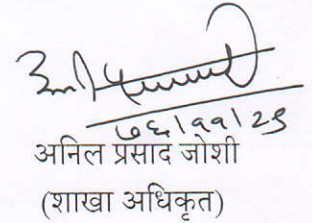 ७६/११/२९
अनिल प्रसाद जोशी
(शाखा अधिकृत)